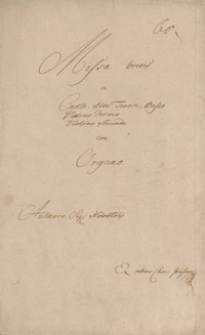 60
Missa brevis
a
Canto Alto Tenore Basso
Violino Primo
Violino Secundo
con
Organo
Authore Sig. Novotni
Ex rebus